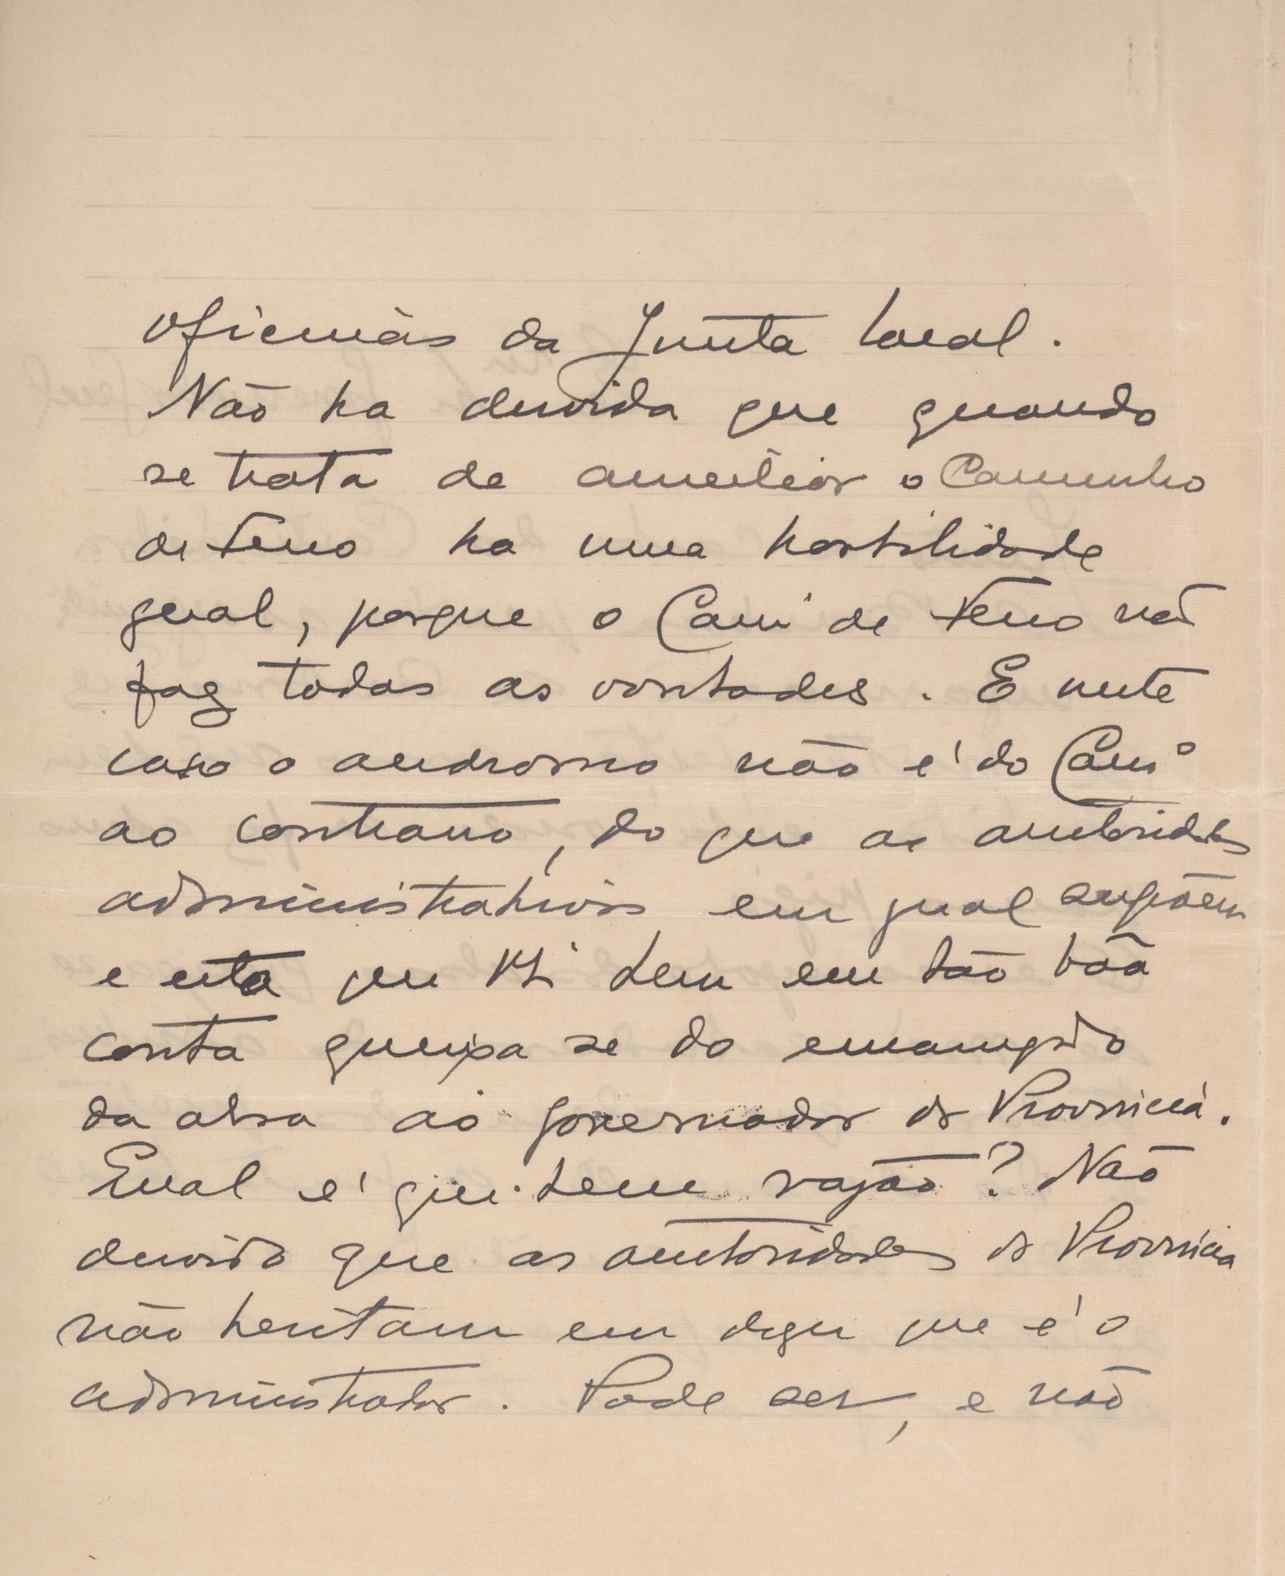 oficinas da Junta local.
Não ha duvida que quando
se trata de auxiliar o Caminho
de Ferro ha uma hostilidade
geral, porque o Cam.º de Ferro não
faz todas as vontades. E neste
caso o não é do Cam.º
ao contrario, do que as autoridades
administrativas em geral supõem
e esta que tem em tão bôa
conta queixa se do
da obra ao governador da Provincia.
Qual é que tem razão? Não
duvido que as autoridades da Provincia
não hesitam em dizer que é o
administrador. Pode ser, e não